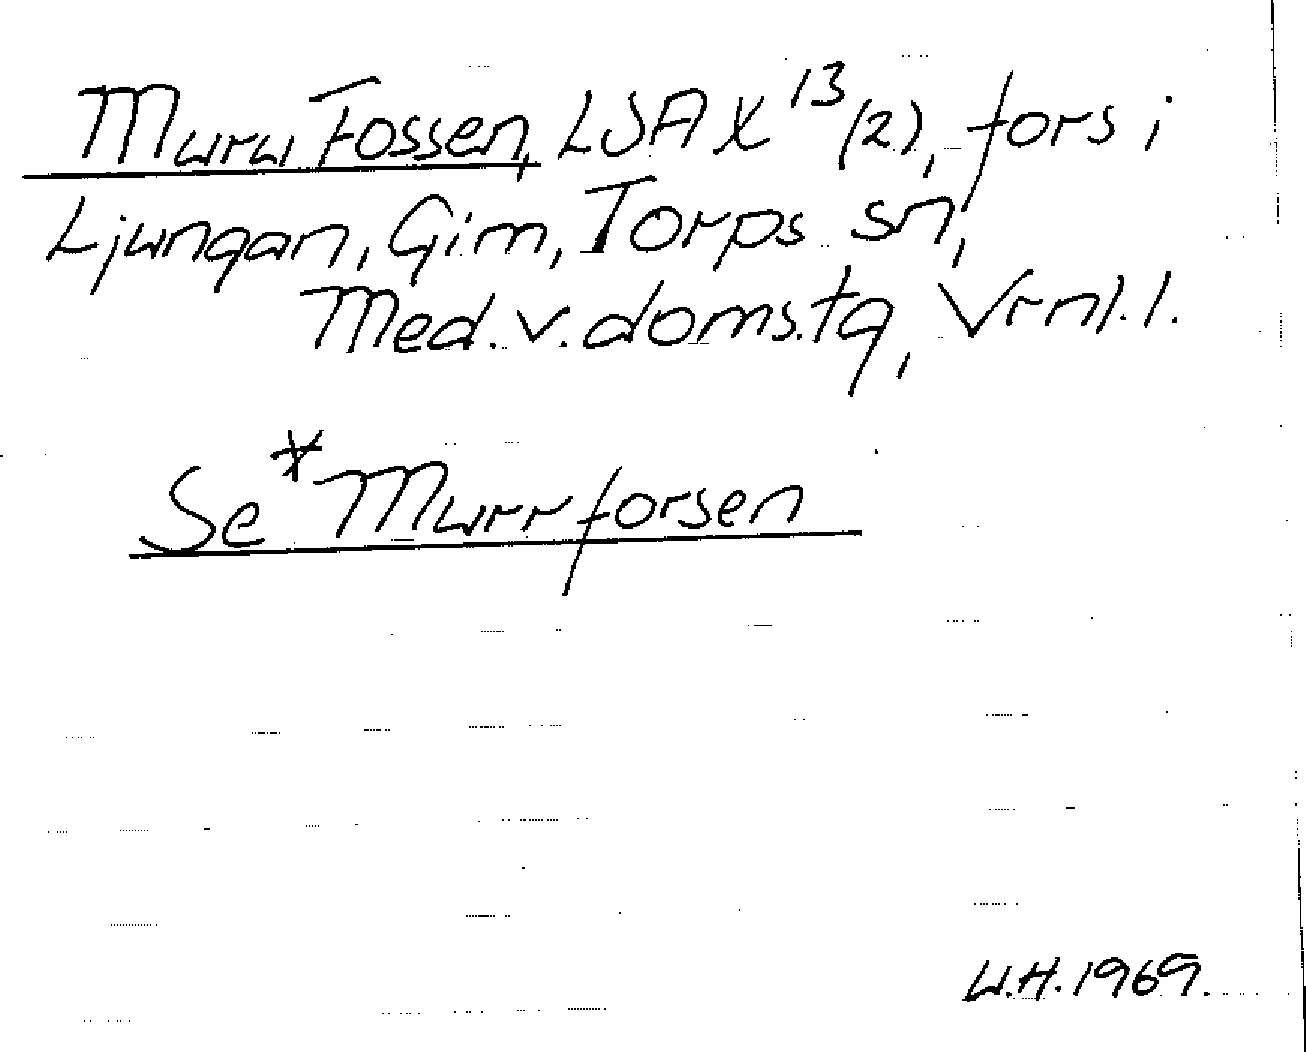 Muru Fossen, LSA X 13 (2), fors i
Ljungan, Gim, Torps sn,
Med. v. doms.tg, Vrnl. l.
Se *Murrforsen
U.H. 1969.